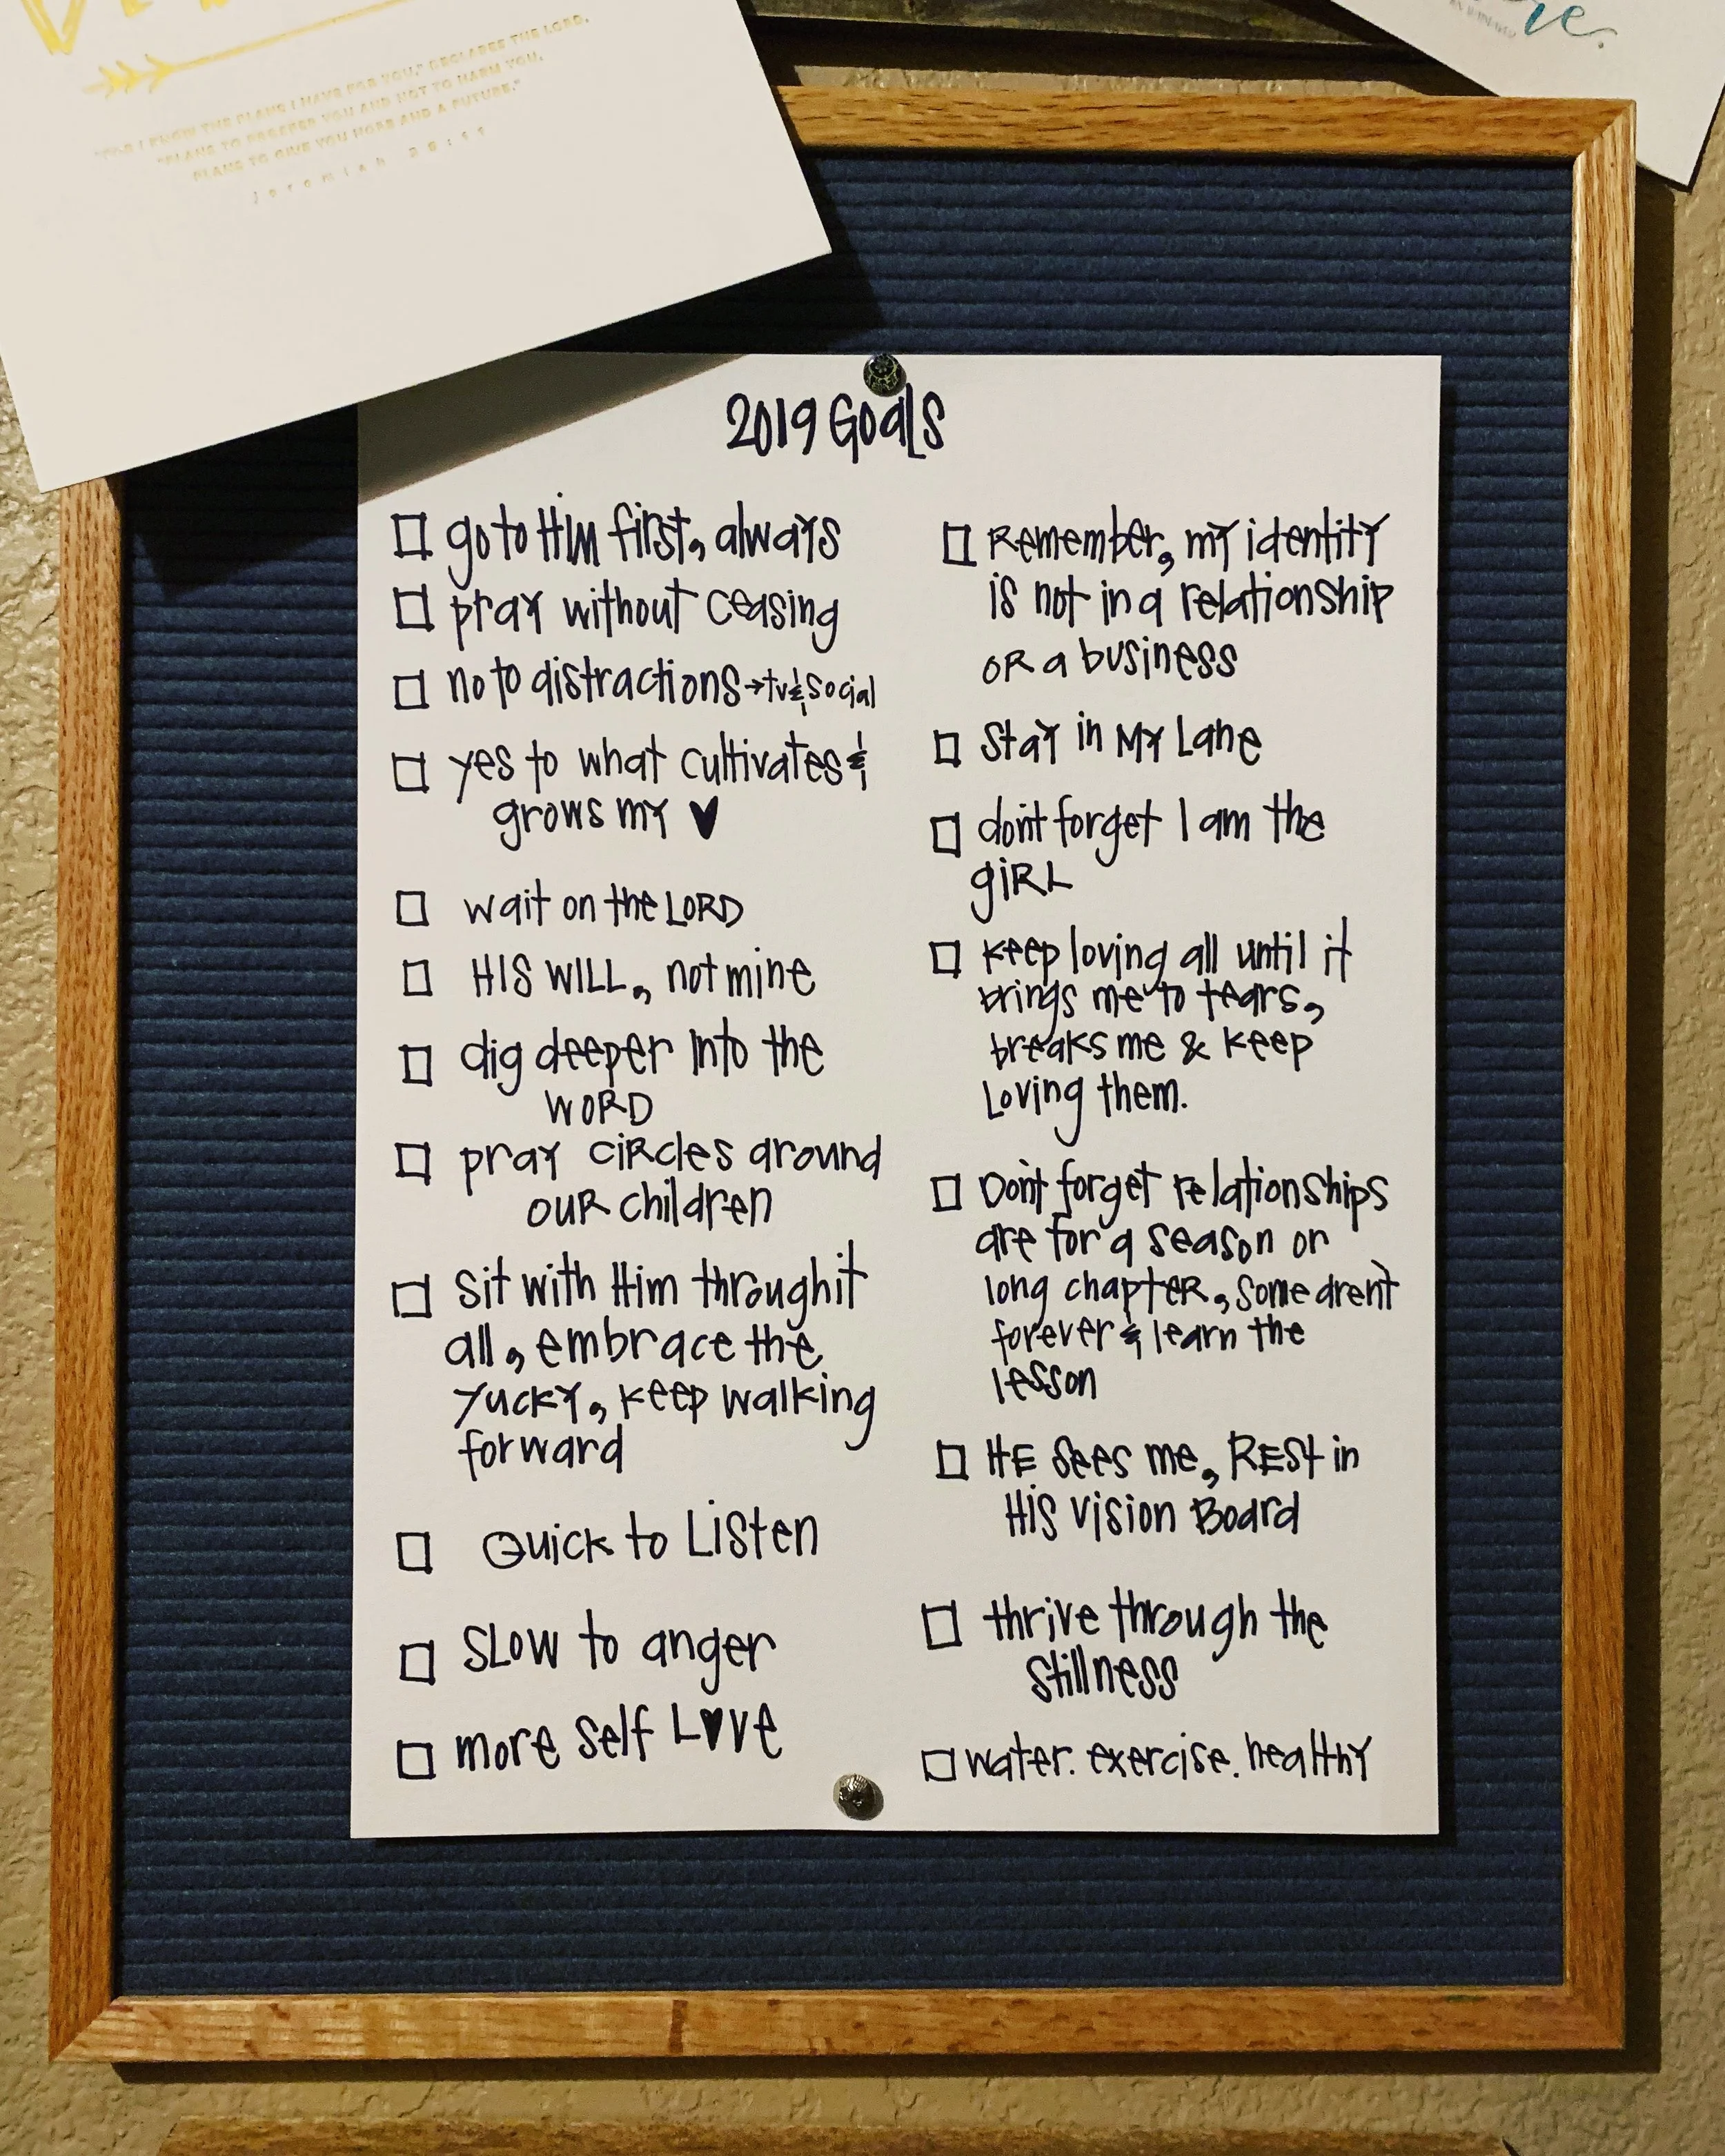 "FOR I KNOW THE PLANS I HAVE FOR YOU," DECLARES THE LORD,
"PLANS TO PROSPER YOU AND NOT TO HARM YOU,
PLANS TO GIVE YOU HOPE AND A FUTURE."
Jeremiah
re.
2019 Goals
☐ go to Him first, always
☐ pray without ceasing
☐ no to distractions → tv & social
☐ yes to what cultivates &
grows my ♥
☐ wait on the LORD
☐ HIS WILL, not mine
☐ dig deeper into the
WORD
☐ pray circles around
our children
☐ Sit with Him through it
all, embrace the
yucky, keep walking
forward
☐ Quick to Listen
☐ SLOW to anger
☐ more self L♥ve
☐ Remember, my identity
is not in a relationship
or a business
☐ Stay in My Lane
☐ don't forget I am the
giRL
☐ keep loving all until it
brings me to tears,
breaks me & keep
Loving them.
☐ Don't forget relationships
are for a season or
long chapter, some arent
forever & learn the
lesson
☐ HE sees me, REST in
His Vision Board
☐ thrive through the
stillness
☐ water. exercise. healthy